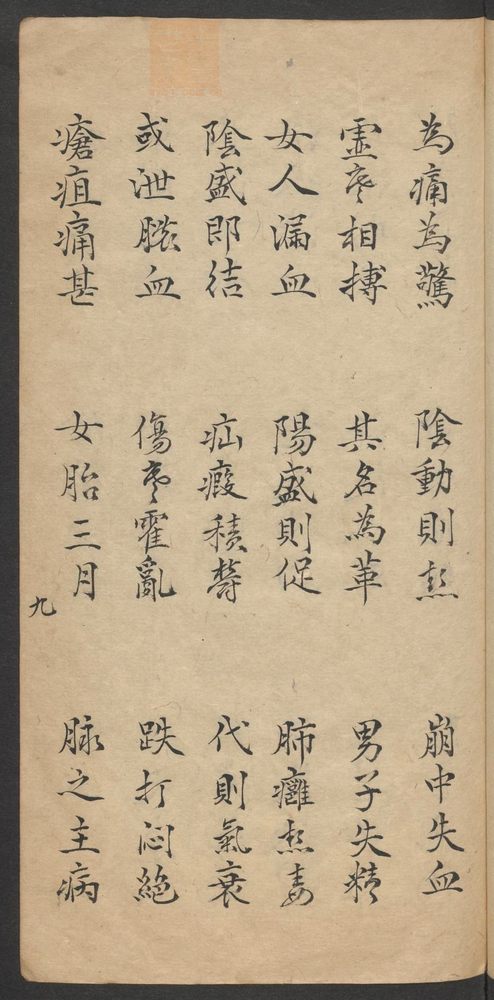 為痛為驚　陰動則热　崩中失血
虚寒相搏　其名為革　男子失精
女人漏血　陽盛則促　肺癰热毒
陰盛即结　疝瘕積欝　代則氣衰
或泄膿血　傷寒霍亂　跌打闷絶
瘡疽痛甚　女胎三月　脉之主病
九